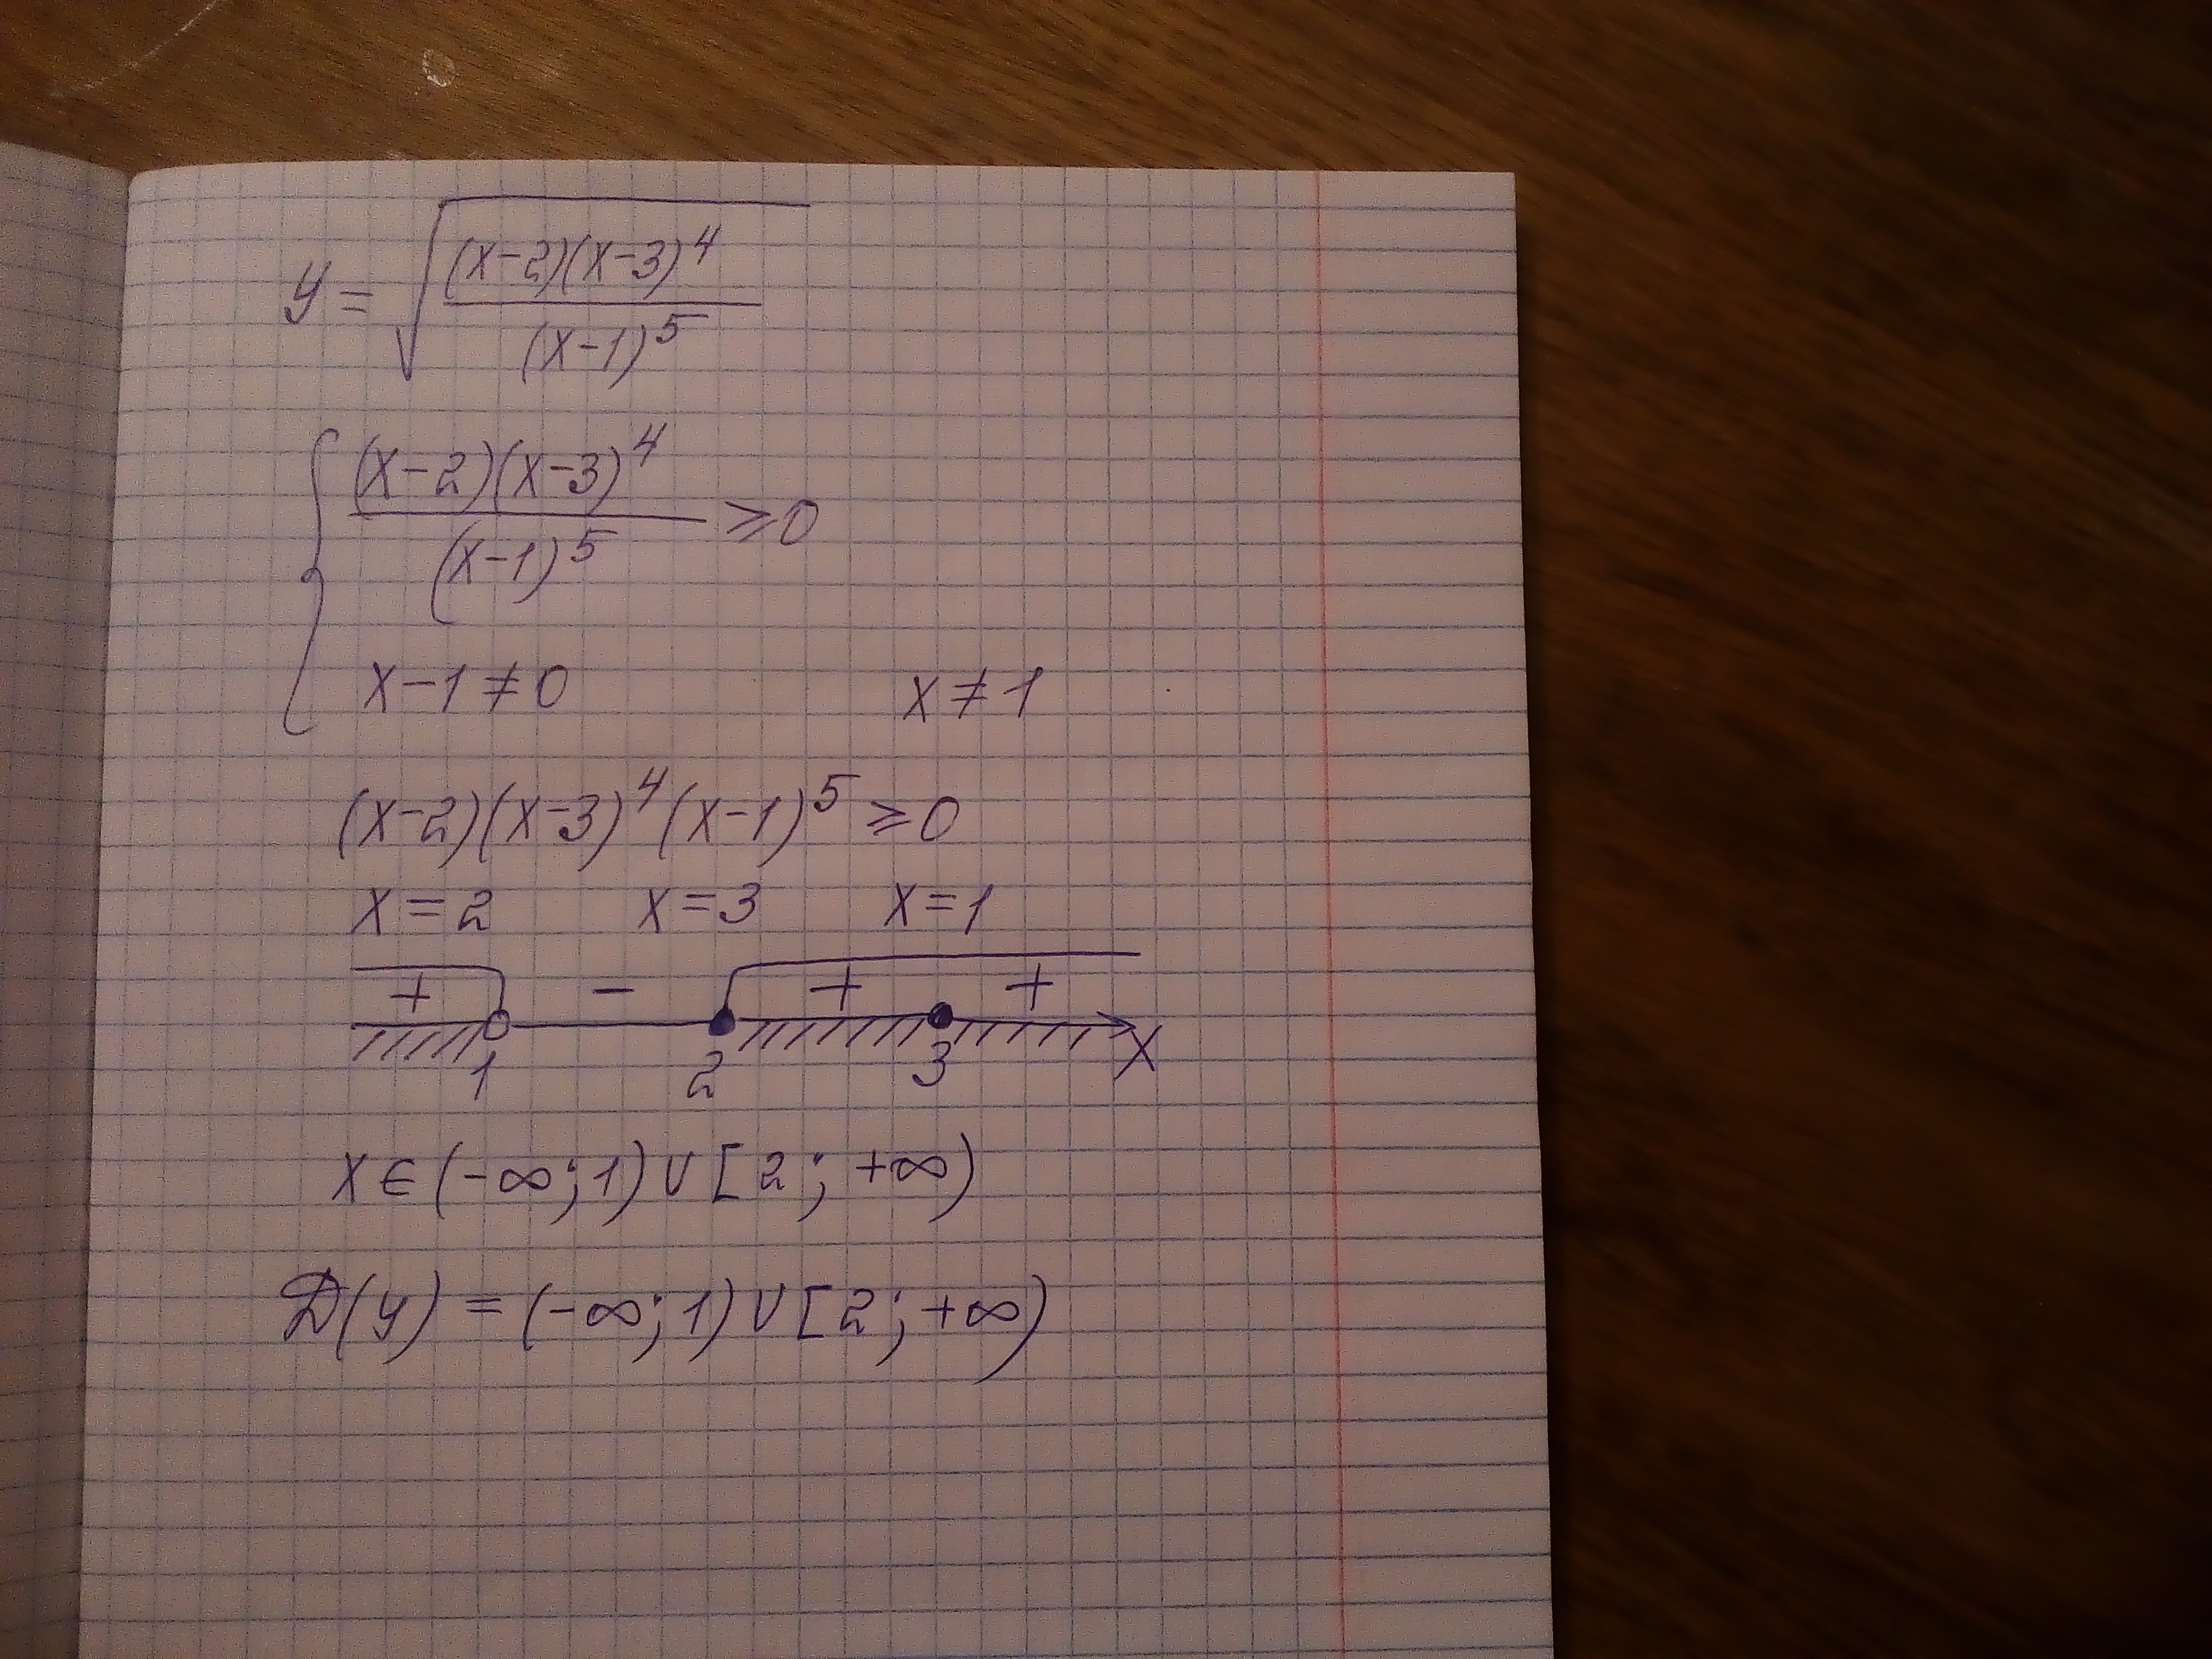 y = √((x-2)(x-3)⁴ / (x-1)⁵)
{ (x-2)(x-3)⁴ / (x-1)⁵ ⩾ 0
x-1 ≠ 0 x ≠ 1
(x-2)(x-3)⁴(x-1)⁵ ⩾ 0
x = 2 x = 3 x = 1
+ - + +
1 2 3 X
x ∈ (-∞; 1) ∪ [2; +∞)
D(y) = (-∞; 1) ∪ [2; +∞)